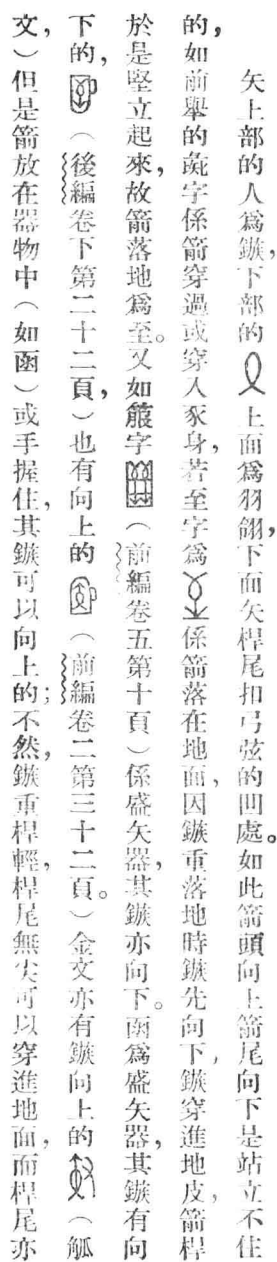 矢上部的人爲鏃，下部的上面爲羽翎，下面矢桿尾扣弓弦的凹處。如此箭頭向上箭尾向下是站立不住
的，如前舉的彘字係箭穿過或穿入豕身，若至字爲係箭落在地面，因鏃重落地時鏃先向下，鏃穿進地皮，箭桿
於是堅立起來，故箭落地爲至。又如箙字（前編卷五第十頁）係盛矢器，其鏃亦向下。函爲盛矢器，其鏃有向
下的，（後編卷下第二十二頁，）也有向上的（前編卷二第三十二頁。）金文亦有鏃向上的（觚
文，）但是箭放在器物中（如函）或手握住，其鏃可以向上的；不然，鏃重桿輕，桿尾無尖可以穿進地面，而桿尾亦